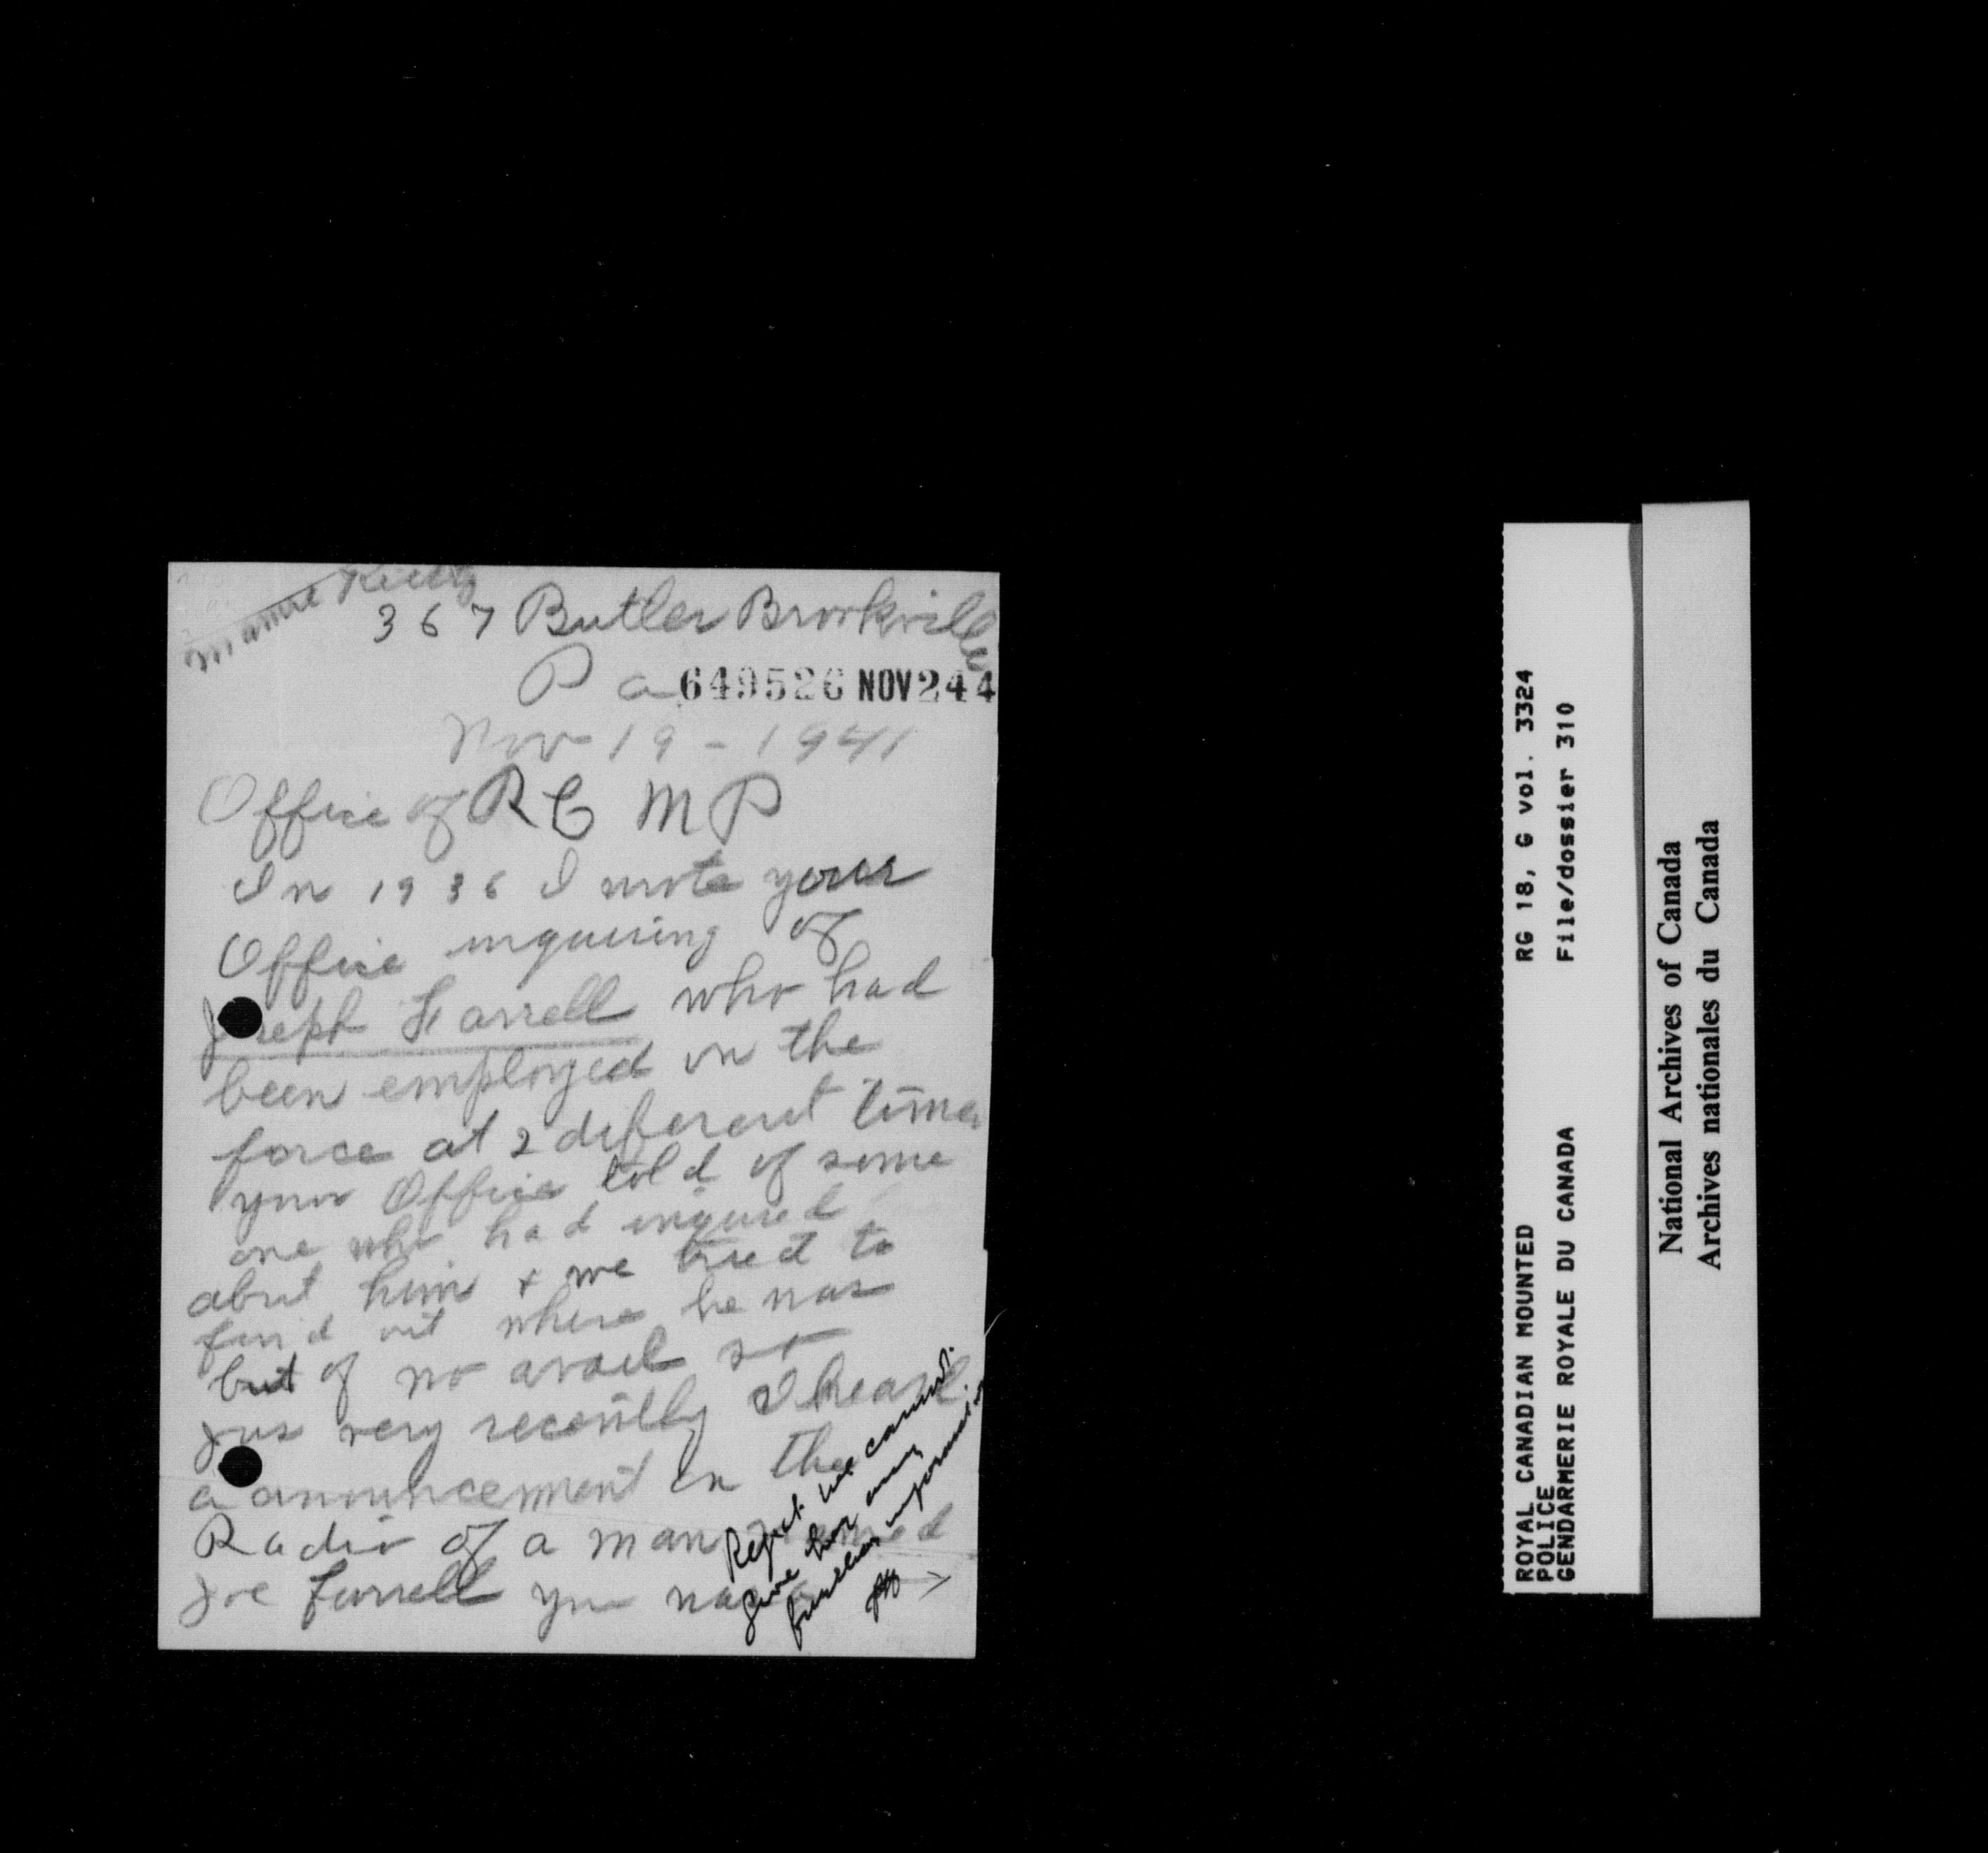 Mamie
367 Butler Brookville
Pa 649526 NOV 24 4
Nov 19 - 1941
Office of R C M P
In 1936 I wrote your
Office inquiring of
Joseph Farrell who had
been employed on the
force at 2 diferent times
your Office told of some
one who had inquired
about him + we tried to
find out where he was
but of no avail so
jus very recently I heard
a announcement on the
Radio of a man named
Joe Farrell you
Regret we cannot
give her any
further information
ROYAL CANADIAN MOUNTED
POLICE
GENDARMERIE ROYALE DU CANADA
RG 18, G vol. 3324
File/dossier 310
National Archives of Canada
Archives nationales du Canada